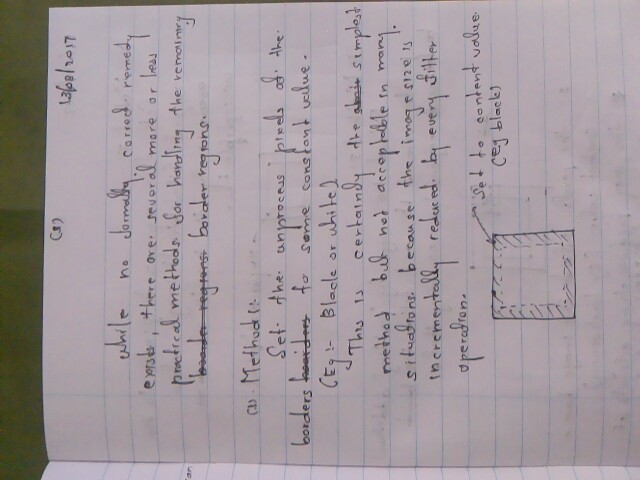 (3)
13/08/2017
While no formally correct remedy
exists, there are several more or less
practical methods for handling the remaining
boarder regions border regions.
(1). Method 1:-
Set the unprocess pixels of the
borders boarders to some constant value.
(Eg :- Black or white)
This is certaindy the simplest
method but not acceptable in many
situations because the image size is
incrementally reduced by every filter
operation.
set to content value
(eg black)